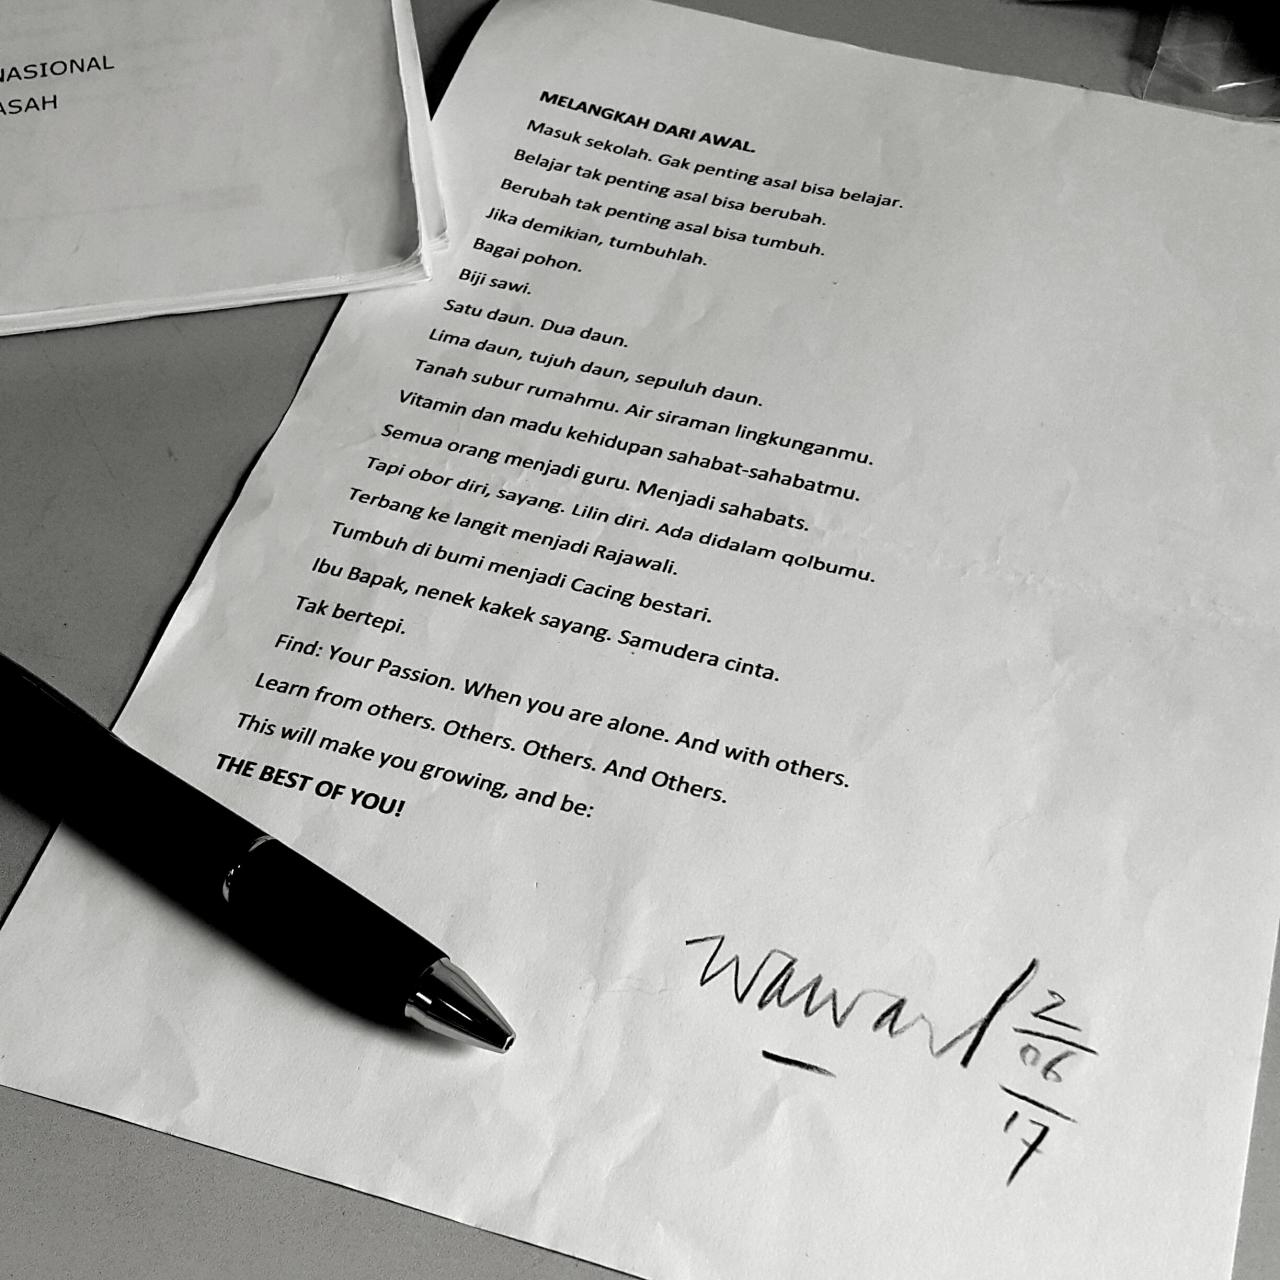 NASIONAL
ASAH
MELANGKAH DARI AWAL.
Masuk sekolah. Gak penting asal bisa belajar.
Belajar tak penting asal bisa berubah.
Berubah tak penting asal bisa tumbuh.
Jika demikian, tumbuhlah.
Bagai pohon.
Biji sawi.
Satu daun. Dua daun.
Lima daun, tujuh daun, sepuluh daun.
Tanah subur rumahmu. Air siraman lingkunganmu.
Vitamin dan madu kehidupan sahabat-sahabatmu.
Semua orang menjadi guru. Menjadi sahabats.
Tapi obor diri, sayang. Lilin diri. Ada didalam qolbumu.
Terbang ke langit menjadi Rajawali.
Tumbuh di bumi menjadi Cacing bestari.
Ibu Bapak, nenek kakek sayang. Samudera cinta.
Tak bertepi.
Find: Your Passion. When you are alone. And with others.
Learn from others. Others. Others. And Others.
This will make you growing, and be:
THE BEST OF YOU!
2
06
17